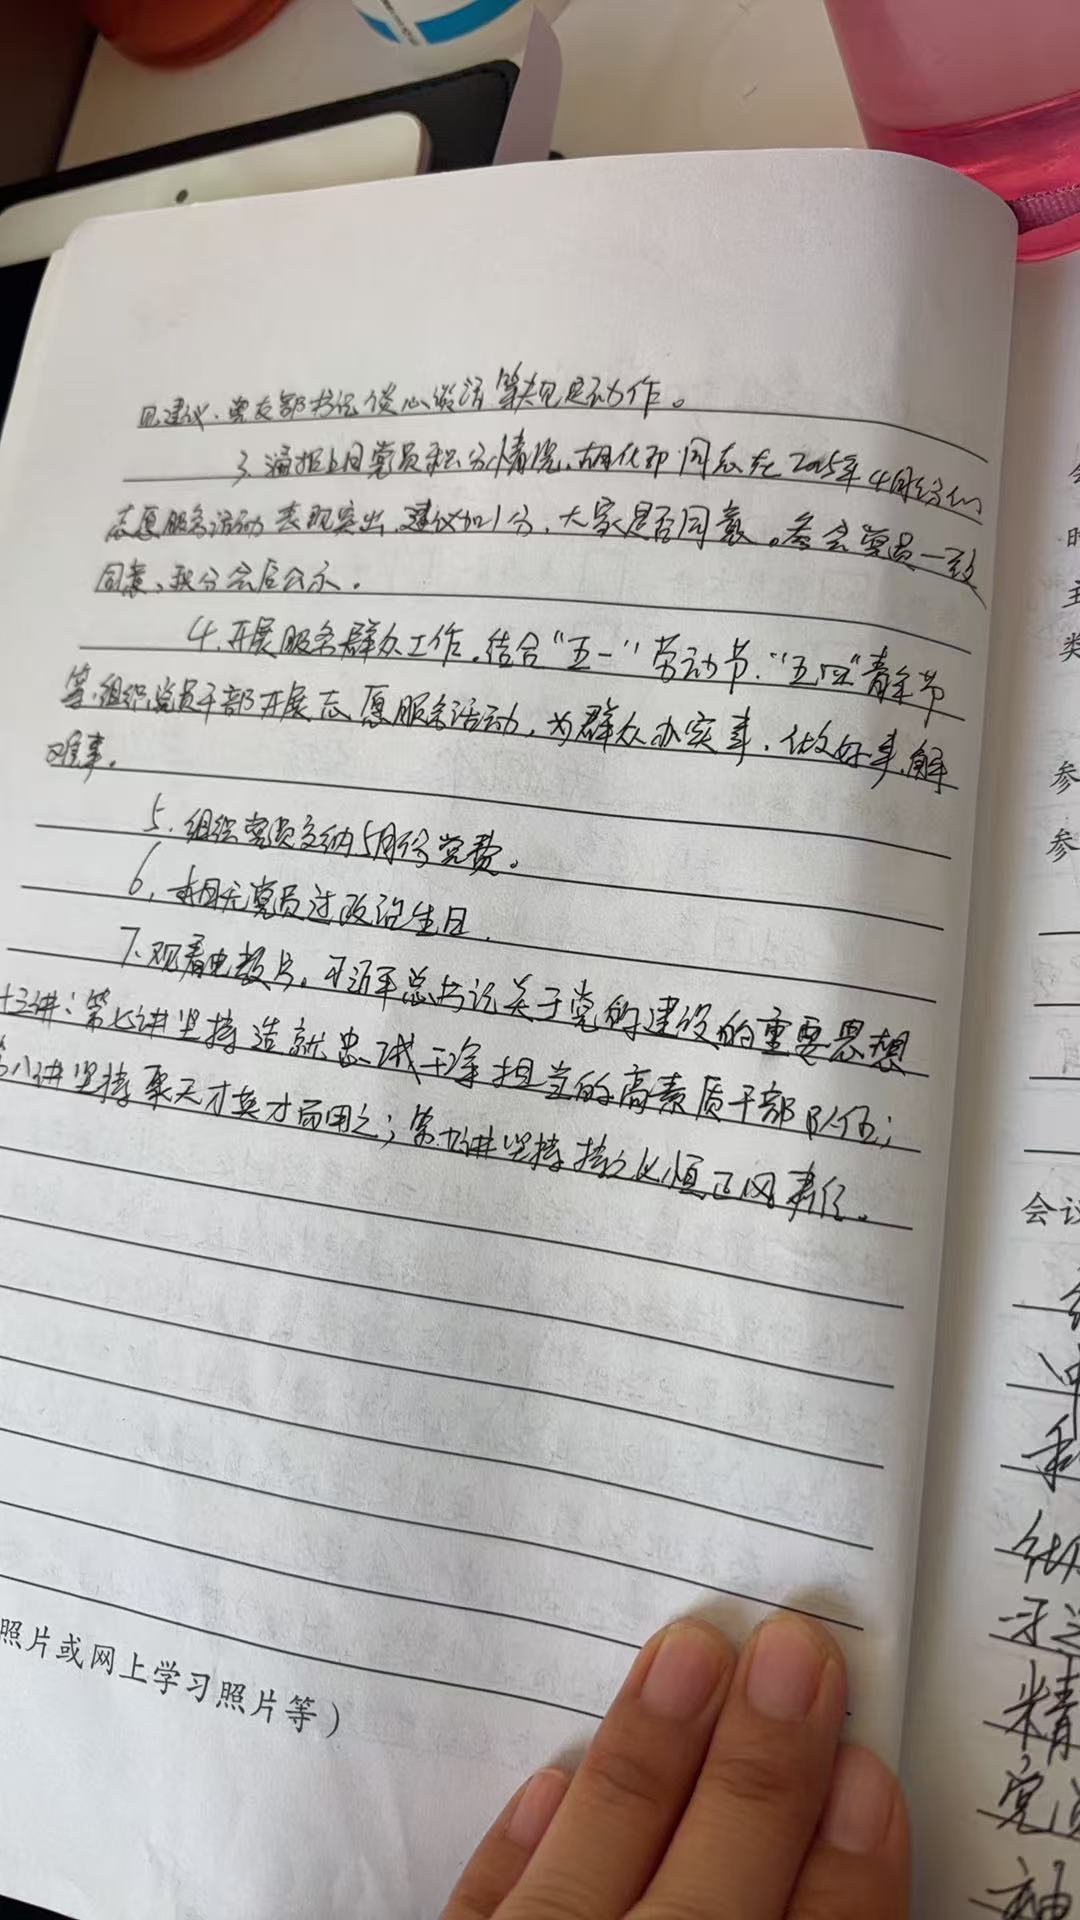 见建议、党支部书记谈心谈话等规定动作。
3、通报上月党员积分情况，胡化邦同志在2025年4月份的
志愿服务活动表现突出，建议加1分，大家是否同意。参会党员一致
同意，积分会后公示。
4、开展服务群众工作。结合“五一”劳动节、“五四”青年节
等，组织党员干部开展志愿服务活动，为群众办实事、做好事、解
难事。
5、组织党员交纳5月份党费。
6、本月无党员过政治生日。
7、观看电教片。习近平总书记关于党的建设的重要思想
十三讲：第七讲坚持造就忠诚干净担当的高素质干部队伍；
第八讲坚持聚天下英才而用之；第九讲坚持持之以恒正风肃纪。
照片或网上学习照片等）
会议
参
参
精
党员